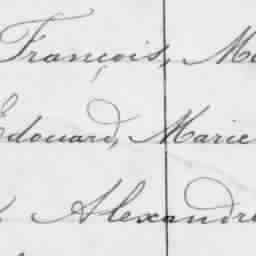 François, M
Edouard, Marie
Alexandre